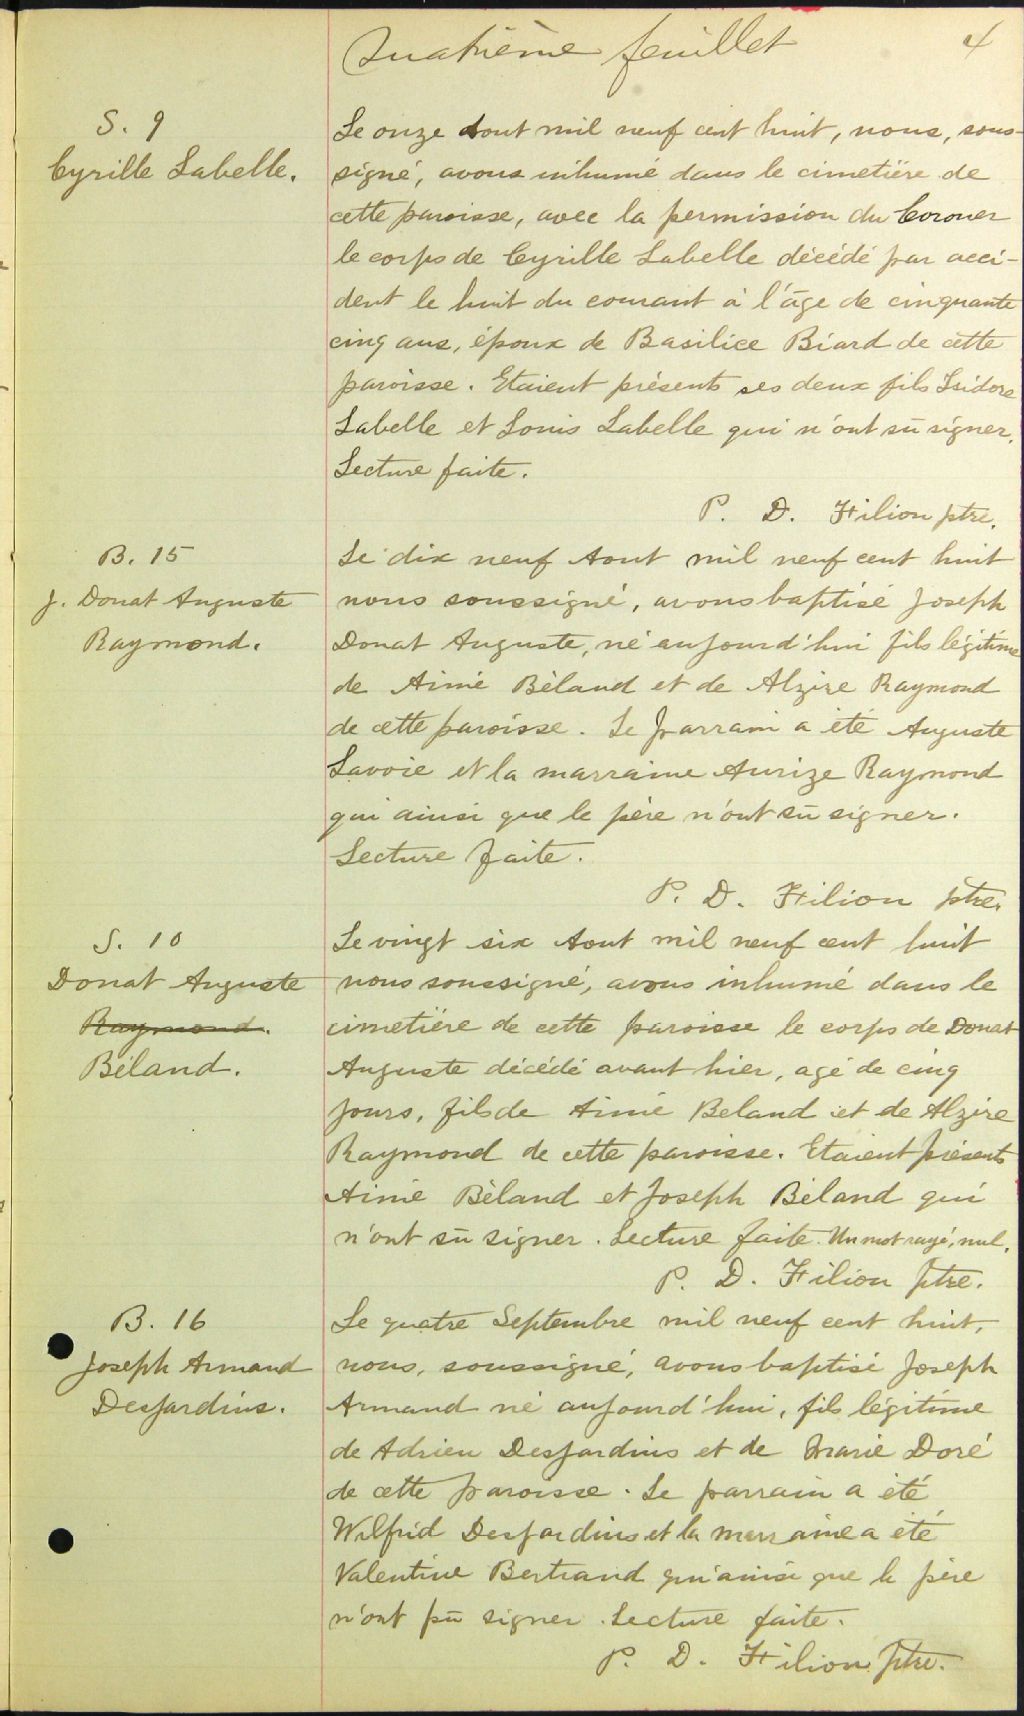 Quatrième feuillet 4
S. 9
Cyrille Labelle.
Le onze Aout mil neuf cent huit, nous, sous-
signé, avons inhumé dans le cimetière de
cette paroisse, avec la permission du Coroner
le corps de Cyrille Labelle décédé par acci-
dent le huit du courant à l'âge de cinquante
cinq ans, époux de Basilice Biard de cette
paroisse. Etaient présents ses deux fils Isidore
Labelle et Louis Labelle qui n'ont sû signer.
Lecture faite.
P. D. Filion ptre.
B. 15
J. Donat Auguste
Raymond.
Le dix neuf Aout mil neuf cent huit
nous soussigné, avons baptisé Joseph
Donat Auguste, né aujourd'hui fils légitime
de Aimé Béland et de Alzire Raymond
de cette paroisse. Le parrain a été Auguste
Lavoie et la marraine Aurize Raymond
qui ainsi que le père n'ont sû signer.
Lecture faite.
P. D. Filion ptre.
S. 10
Donat Auguste
Raymond.
Béland.
Le vingt six Aout mil neuf cent huit
nous soussigné, avons inhumé dans le
cimetière de cette paroisse le corps de Donat
Auguste décédé avant hier, agé de cinq
jours, fils de Aimé Beland et de Alzire
Raymond de cette paroisse. Etaient présents
Aimé Béland et Joseph Béland qui
n'ont sû signer. Lecture faite. Un mot rayé, nul.
P. D. Filion Ptre.
B. 16
Joseph Armand
Desjardins.
Le quatre Septembre mil neuf cent huit,
nous, soussigné, avons baptisé Joseph
Armand né aujourd'hui, fils légitime
de Adrien Desjardins et de Marie Doré
de cette paroisse. Le parrain a été
Wilfrid Desjardins et la marraine a été
Valentine Bertrand qui ainsi que le père
n'ont pû signer. Lecture faite.
P. D. Filion Ptre.